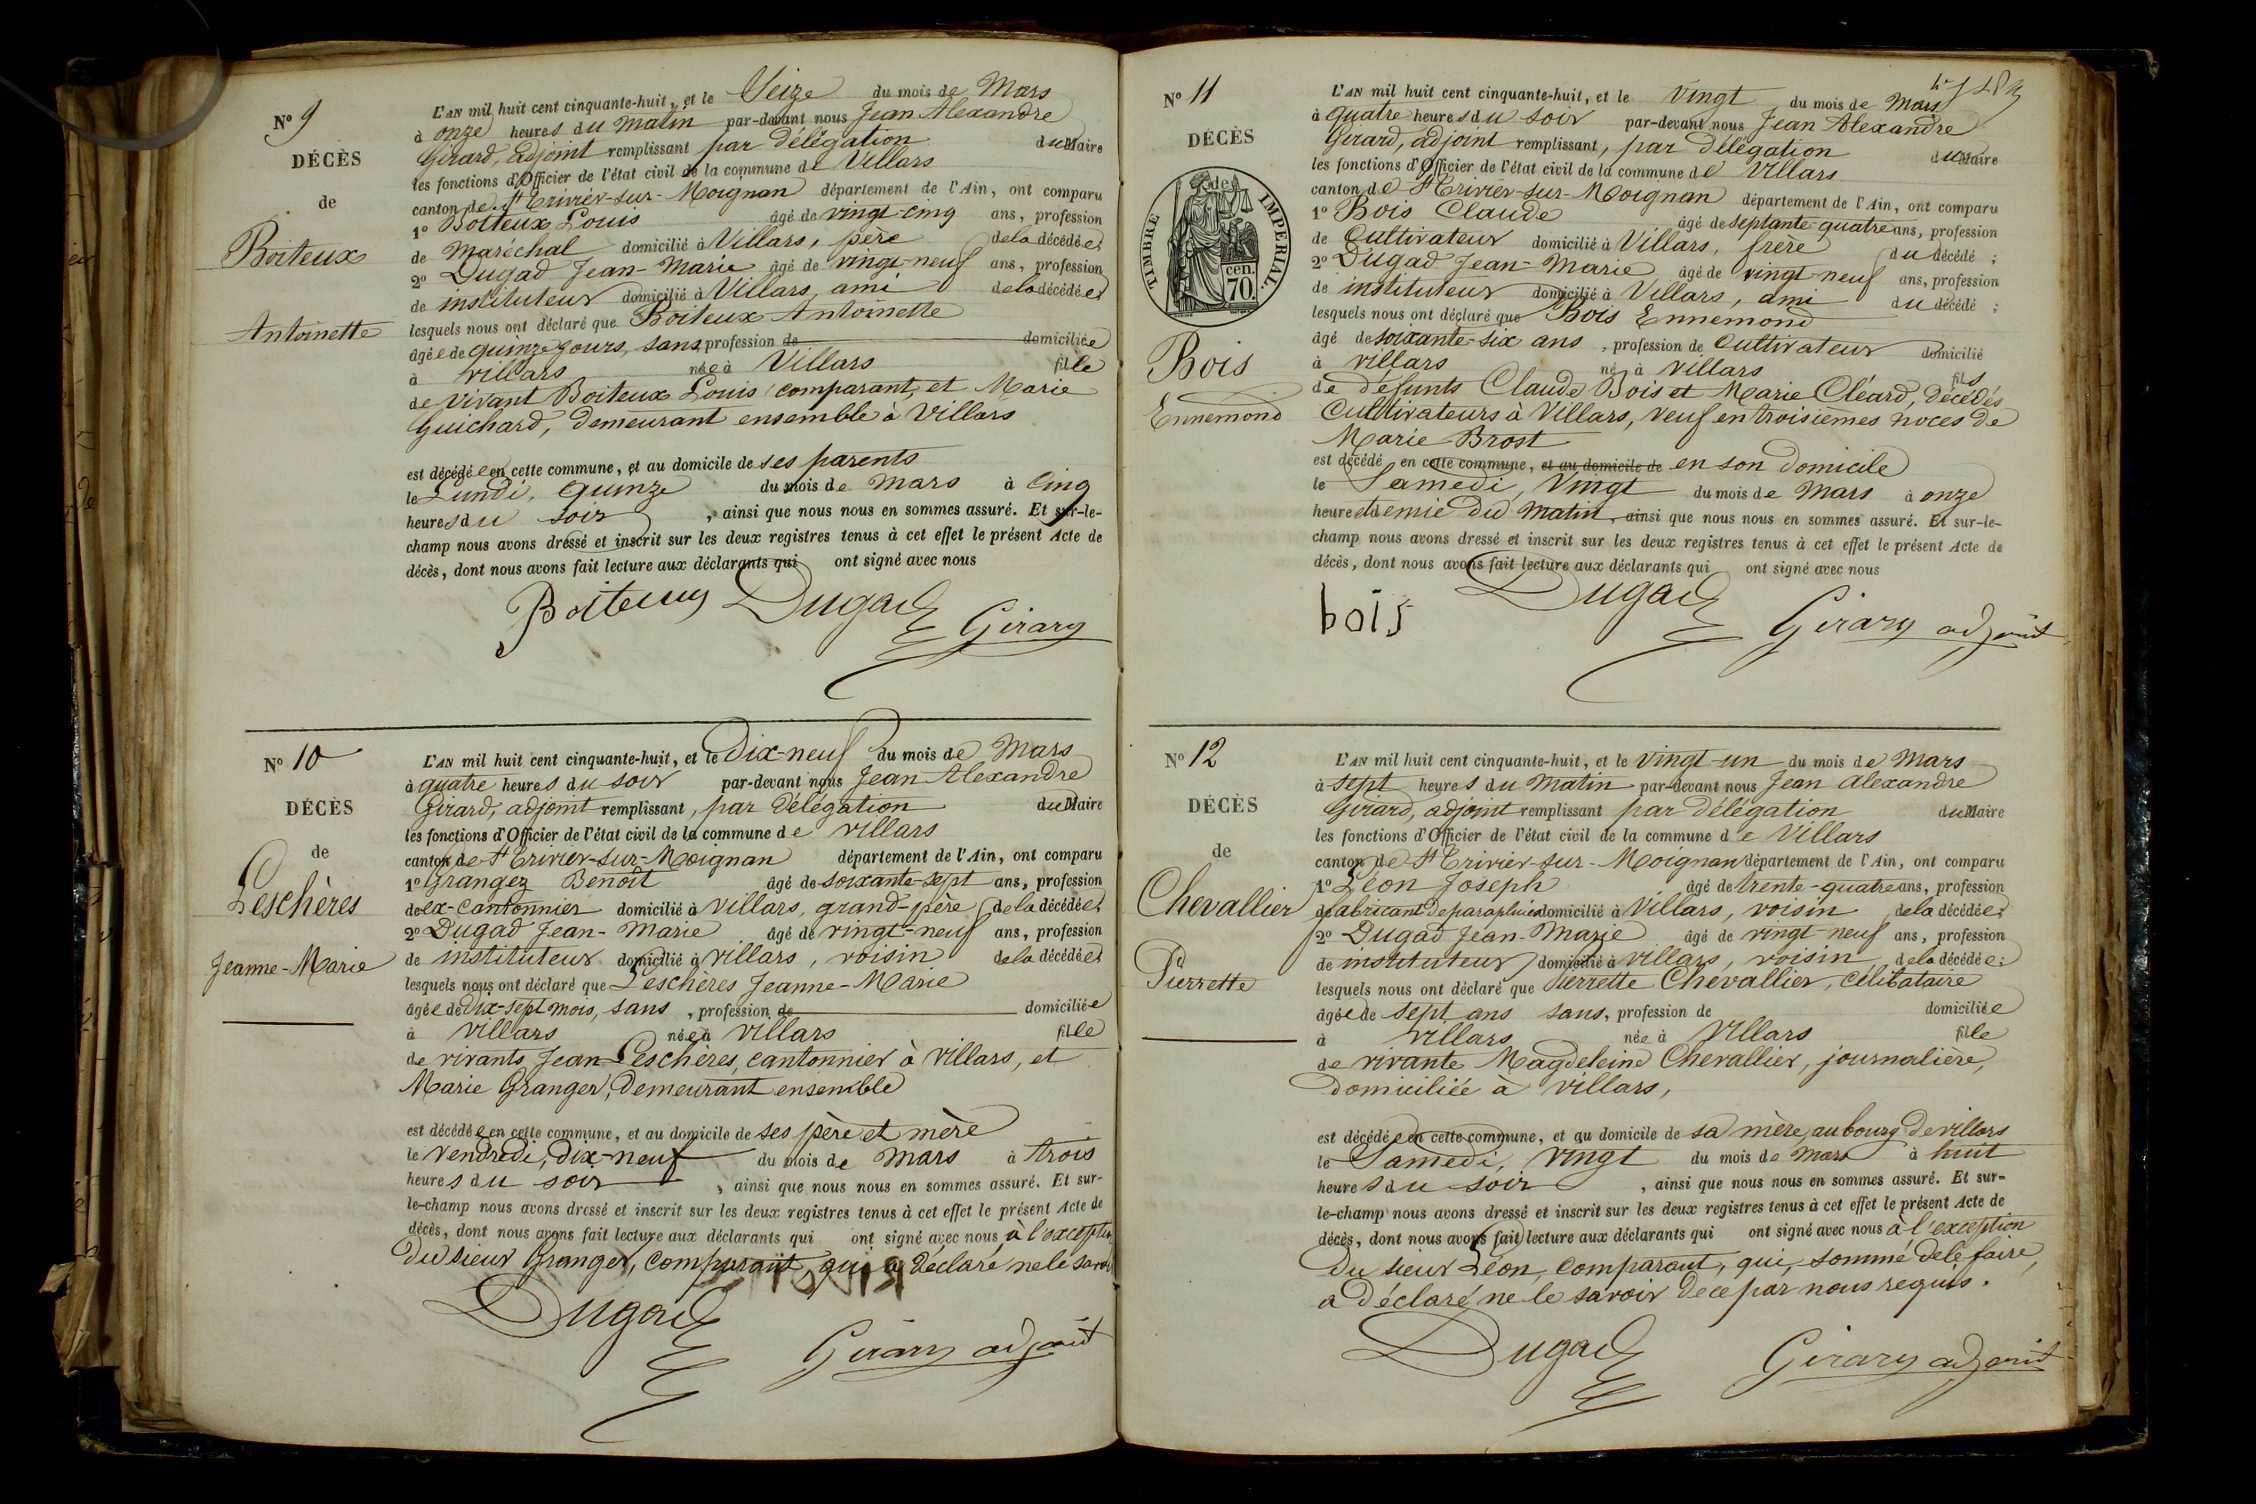 N° 9
DÉCÈS
de
Boiteux
Antoinette
L'AN mil huit cent cinquante-huit, et le Seize du mois de Mars
à onze heures du matin par-devant nous Jean Alexandre
Girard, adjoint remplissant par délégation du Maire
les fonctions d'Officier de l'état civil de la commune de Villars
canton de St Trivier-sur-Moignan département de l'Ain, ont comparu
1° Boiteux Louis âgé de vingt-cinq ans, profession
de Maréchal domicilié à Villars, père de la décédée;
2° Dugad Jean-Marie âgé de vingt-neuf ans, profession
de instituteur domicilié à Villars, ami de la décédée;
lesquels nous ont déclaré que Boiteux Antoinette
âgée de quinze jours, sans profession de domiciliée
à villars née à Villars fille
de vivant Boiteux Louis comparant, et Marie
Guichard, demeurant ensemble à Villars
est décédée en cette commune, et au domicile de ses parents
le Lundi, quinze du mois de mars à cinq
heures du soir, ainsi que nous nous en sommes assuré. Et sur-le-
champ nous avons dressé et inscrit sur les deux registres tenus à cet effet le présent Acte de
décès, dont nous avons fait lecture aux déclarants qui ont signé avec nous
Boiteux Dugad Girard
N° 10
DÉCÈS
de
Leschères
Jeanne-Marie
L'AN mil huit cent cinquante-huit, et le Dix-neuf du mois de Mars
à quatre heures du soir par-devant nous Jean Alexandre
Girard, adjoint remplissant, par délégation du Maire
les fonctions d'Officier de l'état civil de la commune de villars
canton de St Trivier-sur-Moignan département de l'Ain, ont comparu
1° Granger Benoît âgé de soixante-sept ans, profession
de ex-cantonnier domicilié à Villars, grand-père de la décédée;
2° Dugad Jean-Marie âgé de vingt-neuf ans, profession
de instituteur domicilié à villars, voisin de la décédée;
lesquels nous ont déclaré que Leschères Jeanne-Marie
âgée de dix-sept mois, sans, profession de domiciliée
à villars née à villars fille
de vivants Jean Leschères, cantonnier à villars, et
Marie Granger, demeurant ensemble
est décédée en cette commune, et au domicile de ses père et mère
le vendredi, dix-neuf du mois de mars à trois
heures du soir, ainsi que nous nous en sommes assuré. Et sur-
le-champ nous avons dressé et inscrit sur les deux registres tenus à cet effet le présent Acte de
décès, dont nous avons fait lecture aux déclarants qui ont signé avec nous, à l'exception
du sieur Granger, comparant, qui a déclaré ne le savoir
Dugad
Girard adjoint
N° 11
DÉCÈS
de
TIMBRE IMPERIAL.
cen.
70.
Bois
Ennemond
L'AN mil huit cent cinquante-huit, et le vingt du mois de Mars
à quatre heures du soir par-devant nous Jean Alexandre
Girard, adjoint remplissant, par délégation du Maire
les fonctions d'Officier de l'état civil de la commune de Villars
canton de St Trivier-sur-Moignan département de l'Ain, ont comparu
1° Bois Claude âgé de septante-quatre ans, profession
de Cultivateur domicilié à Villars, frère du décédé;
2° Dugad Jean-Marie âgé de vingt-neuf ans, profession
de instituteur domicilié à Villars, ami du décédé;
lesquels nous ont déclaré que Bois Ennemond
âgé de soixante-six ans, profession de cultivateur domicilié
à villars né à villars fils
de défunts Claude Bois et Marie Cléard, décédés
Cultivateurs à Villars, veuf en troisièmes noces de
Marie Brost
est décédé en cette commune, et au domicile de en son domicile
le Samedi, vingt du mois de mars à onze
heure et demie du matin, ainsi que nous nous en sommes assuré. Et sur-le-
champ nous avons dressé et inscrit sur les deux registres tenus à cet effet le présent Acte de
décès, dont nous avons fait lecture aux déclarants qui ont signé avec nous
bois Dugad Girard adjoint
N° 12
DÉCÈS
de
Chevallier
Pierrette
L'AN mil huit cent cinquante-huit, et le vingt-un du mois de Mars
à sept heures du matin par-devant nous Jean Alexandre
Girard, adjoint remplissant par délégation du Maire
les fonctions d'Officier de l'état civil de la commune de Villars
canton de St Trivier-sur-Moignan département de l'Ain, ont comparu
1° Léon Joseph âgé de trente-quatre ans, profession
de fabricant de parapluies domicilié à Villars, voisin de la décédée;
2° Dugad Jean-Marie âgé de vingt-neuf ans, profession
de instituteur domicilié à villars, voisin de la décédée;
lesquels nous ont déclaré que Pierrette Chevallier, célibataire
âgée de sept ans sans, profession de domiciliée
à villars née à Villars fille
de vivante Magdeleine Chevallier, journalière,
domiciliée à villars,
est décédée en cette commune, et au domicile de sa mère, au bourg de villars
le Samedi, vingt du mois de mars à huit
heures du soir, ainsi que nous nous en sommes assuré. Et sur-
le-champ nous avons dressé et inscrit sur les deux registres tenus à cet effet le présent Acte de
décès, dont nous avons fait lecture aux déclarants qui ont signé avec nous à l'exception
du sieur Léon, comparant, qui, sommé de le faire,
a déclaré ne le savoir de ce par nous requis.
Dugad Girard adjoint